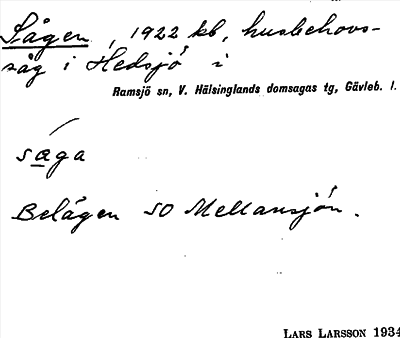 Sågen, 1922 kb, husbehovs-
såg i Hedsjö i
Ramsjö sn, V. Hälsinglands domsagas tg, Gävleb. l.
sa̲ga
Belägen SO Mellansjön.
LARS LARSSON 1934